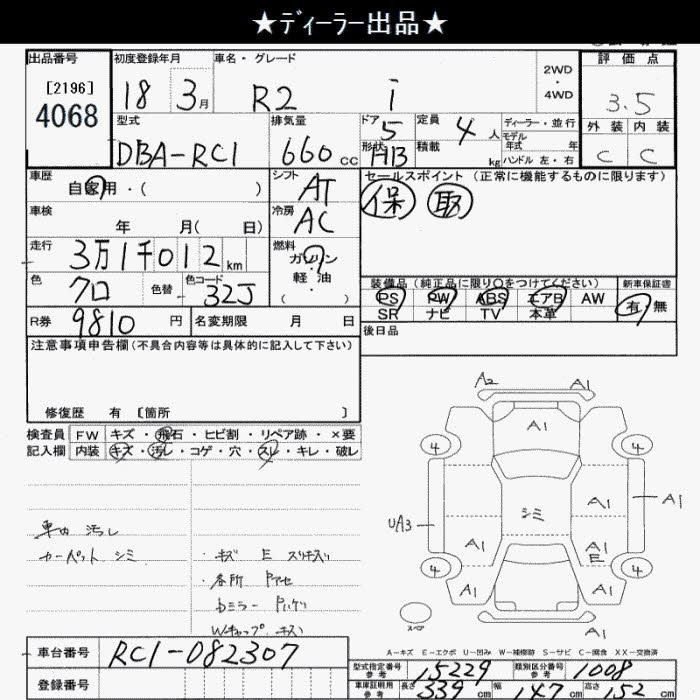 ★ディーラー出品★
出品番号 初度登録年月 車名・グレード 2WD・4WD 評価点
[2196]
4068
18 3月 R2 i 3.5
型式 排気量 ドア 定員 ディーラー・並行 外装 内装
モデル年式 年
DBA-RC1 660cc 5 4人 C C
形状 積載 ハンドル 左・右
HB kg
車歴 シフト セールスポイント(正常に機能するものに限ります)
自家用・( ) AT 保 取
車検 冷房
年 月( 日) AC
走行 燃料
3万1千012km ガソリン
軽油
( ・ )
色 色替 色コード 装備品(純正品に限り○をつけてください) 新車保証書
クロ 32J PS PW ABS エアB AW 有 無
SR ナビ TV 本革
R券 9810円 名変期限 月 日 後日品
注意事項申告欄(不具合内容等は具体的に記入して下さい)
修復歴 有 [箇所 ]
検査員 FW キズ・飛石・ヒビ割・リペア跡・×要
記入欄 内装 キズ・汚レ・コゲ・穴・スレ・キレ・破レ
車内 汚レ
カーペット シミ
・キズ E スリキズ入リ
・各所
ミラー
Wキャップ キズ
A2 A1
A1
4 4
A1
シミ
A1 A1
UA3
A1 A1
E
4 4
A1 A1
A1
スペア
A-キズ E-エクボ U-凹み W-補修跡 S-サビ C-腐食 XX-交換済
車台番号 RC1-082307
登録番号
型式指定番号 参考 15229 類別区分番号 参考 1008
車庫証明用 参考 長さ 339cm 幅 147cm 高さ 152cm